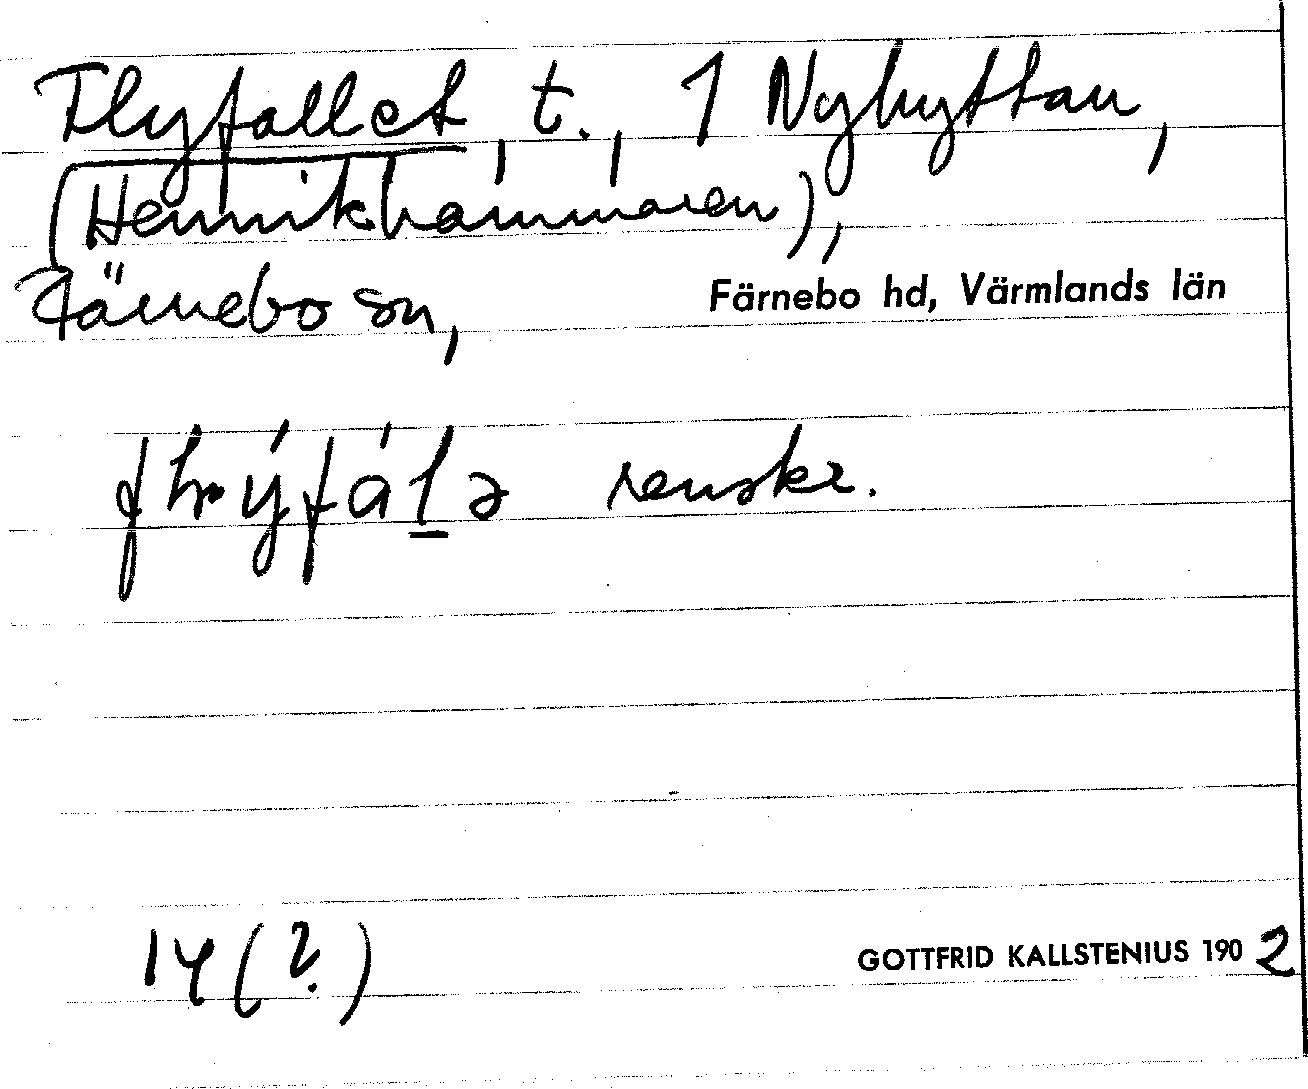 Flyfallet, t., 1 Nyhyttan,
(Hennikhammaren),
Färnebo sn, Färnebo hd, Värmlands län
renskr.
14 (?) GOTTFRID KALLSTENIUS 1902